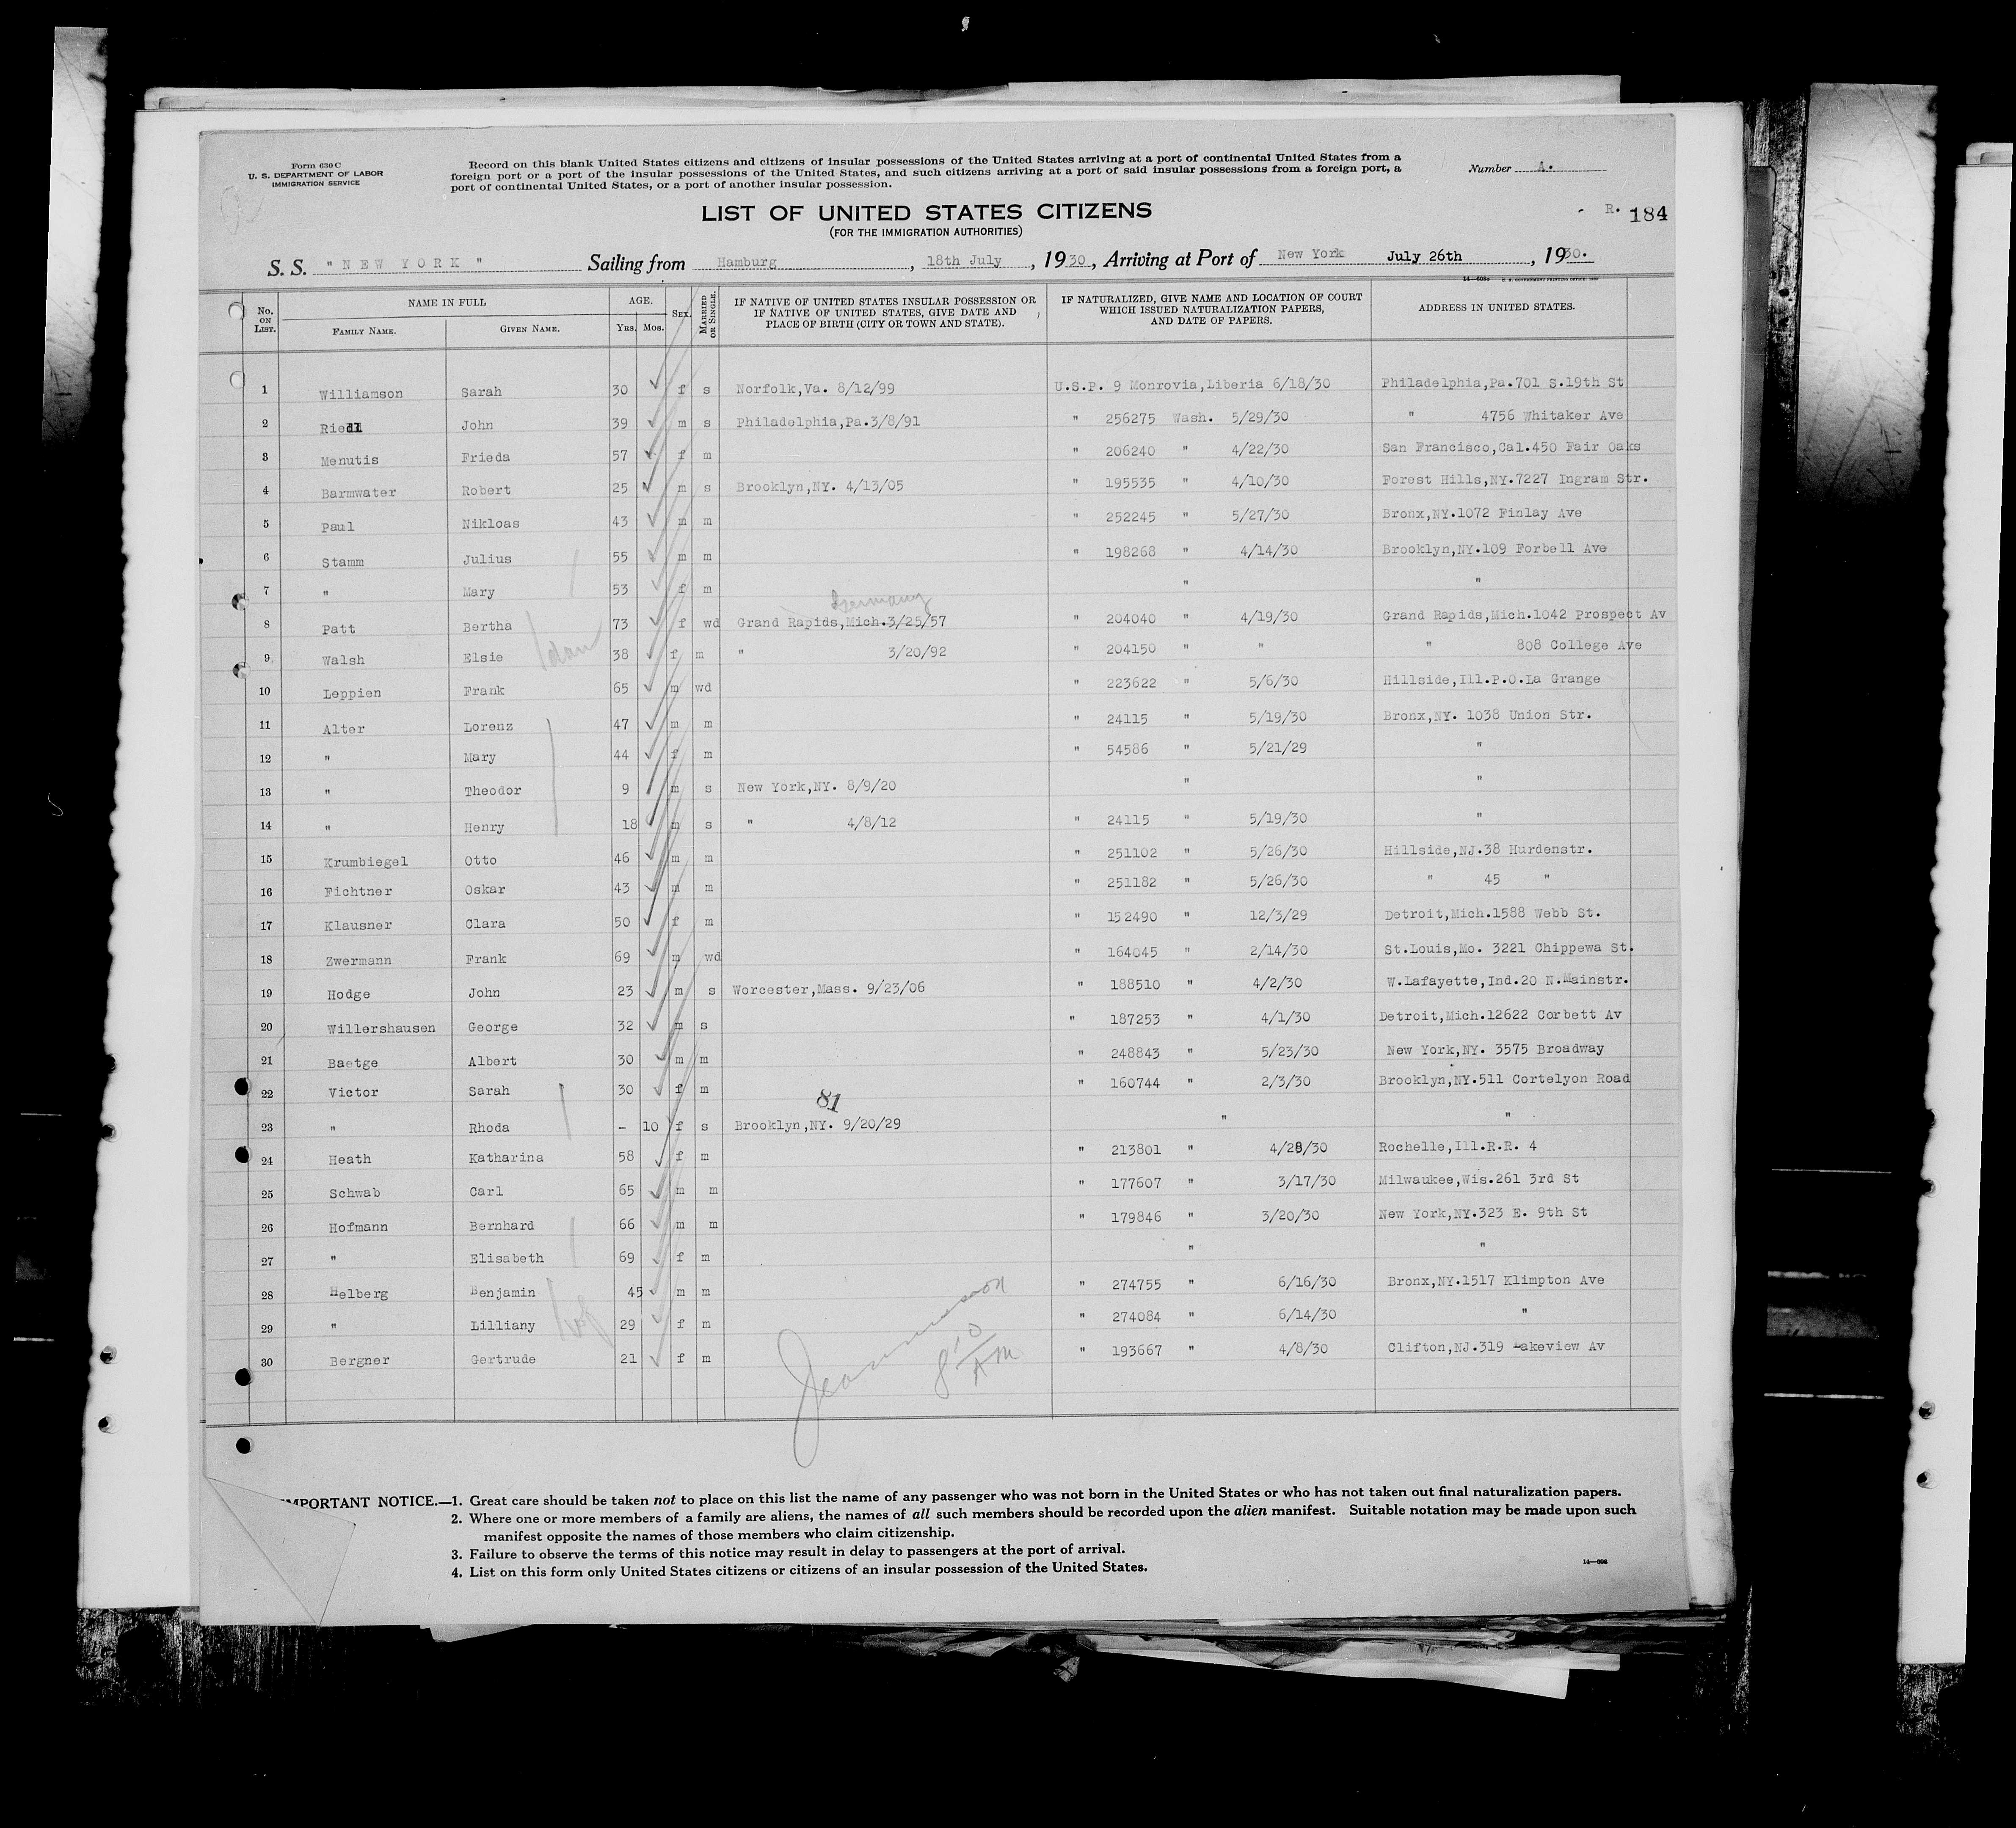 Form 630 C
U. S. DEPARTMENT OF LABOR
IMMIGRATION SERVICE
Record on this blank United States citizens and citizens of insular possessions of the United States arriving at a port of continental United States from a
foreign port or a port of the insular possessions of the United States, and such citizens arriving at a port of said insular possessions from a foreign port, a
port of continental United States, or a port of another insular possession.
Number A.
LIST OF UNITED STATES CITIZENS
(FOR THE IMMIGRATION AUTHORITIES)
R. 184
S. S. " NEW YORK " Sailing from Hamburg, 18th July, 1930, Arriving at Port of New York July 26th, 1930.
No. ON LIST. NAME IN FULL FAMILY NAME. GIVEN NAME. AGE. YRS. MOS. SEX. MARRIED OR SINGLE. IF NATIVE OF UNITED STATES INSULAR POSSESSION OR IF NATIVE OF UNITED STATES, GIVE DATE AND PLACE OF BIRTH (CITY OR TOWN AND STATE). IF NATURALIZED, GIVE NAME AND LOCATION OF COURT WHICH ISSUED NATURALIZATION PAPERS, AND DATE OF PAPERS. ADDRESS IN UNITED STATES.
1 Williamson Sarah 30 f s Norfolk,Va. 8/12/99 U.S.P. 9 Monrovia,Liberia 6/18/30 Philadelphia,Pa.701 S.19th St
2 Riedl John 39 m s Philadelphia,Pa.3/8/91 " 256275 Wash. 5/29/30 " 4756 Whitaker Ave
3 Menutis Frieda 57 f m " 206240 " 4/22/30 San Francisco,Cal.450 Fair Oaks
4 Barmwater Robert 25 m s Brooklyn,NY. 4/13/05 " 195535 " 4/10/30 Forest Hills,NY.7227 Ingram Str.
5 Paul Nikloas 43 m m " 252245 " 5/27/30 Bronx,NY.1072 Finlay Ave
6 Stamm Julius 55 m m " 198268 " 4/14/30 Brooklyn,NY.109 Forbell Ave
7 " Mary 53 f m " "
Germany
8 Patt Bertha 73 f wd Grand Rapids,Mich.3/25/57 " 204040 " 4/19/30 Grand Rapids,Mich.1042 Prospect Av
9 Walsh Elsie 38 f m " 3/20/92 " 204150 " " " 808 College Ave
10 Leppien Frank 65 m wd " 223622 " 5/6/30 Hillside,Ill.P.O.La Grange
11 Alter Lorenz 47 m m " 24115 " 5/19/30 Bronx,NY. 1038 Union Str.
12 " Mary 44 f m " 54586 " 5/21/29 "
13 " Theodor 9 m s New York,NY. 8/9/20 " "
14 " Henry 18 m s " 4/8/12 " 24115 " 5/19/30 "
15 Krumbiegel Otto 46 m m " 251102 " 5/26/30 Hillside,NJ.38 Hurdenstr.
16 Fichtner Oskar 43 m m " 251182 " 5/26/30 " 45 "
17 Klausner Clara 50 f m " 152490 " 12/3/29 Detroit,Mich.1588 Webb St.
18 Zwermann Frank 69 m wd " 164045 " 2/14/30 St.Louis,Mo. 3221 Chippewa St.
19 Hodge John 23 m s Worcester,Mass. 9/23/06 " 188510 " 4/2/30 W.Lafayette,Ind.20 N.Mainstr.
20 Willershausen George 32 m s " 187253 " 4/1/30 Detroit,Mich.12622 Corbett Av
21 Baetge Albert 30 m m " 248843 " 5/23/30 New York,NY. 3575 Broadway
22 Victor Sarah 30 f m " 160744 " 2/3/30 Brooklyn,NY.511 Cortelyon Road
81
23 " Rhoda - 10 f s Brooklyn,NY. 9/20/29 " "
24 Heath Katharina 58 f m " 213801 " 4/28/30 Rochelle,Ill.R.R. 4
25 Schwab Carl 65 m m " 177607 " 3/17/30 Milwaukee,Wis.261 3rd St
26 Hofmann Bernhard 66 m m " 179846 " 3/20/30 New York,NY.323 E. 9th St
27 " Elisabeth 69 f m " "
28 Helberg Benjamin 45 m m " 274755 " 6/16/30 Bronx,NY.1517 Klimpton Ave
29 " Lilliany 29 f m " 274084 " 6/14/30 "
30 Bergner Gertrude 21 f m " 193667 " 4/8/30 Clifton,NJ.319 Lakeview Av
8 10 AM
IMPORTANT NOTICE.—1. Great care should be taken not to place on this list the name of any passenger who was not born in the United States or who has not taken out final naturalization papers.
2. Where one or more members of a family are aliens, the names of all such members should be recorded upon the alien manifest. Suitable notation may be made upon such
manifest opposite the names of those members who claim citizenship.
3. Failure to observe the terms of this notice may result in delay to passengers at the port of arrival.
4. List on this form only United States citizens or citizens of an insular possession of the United States.